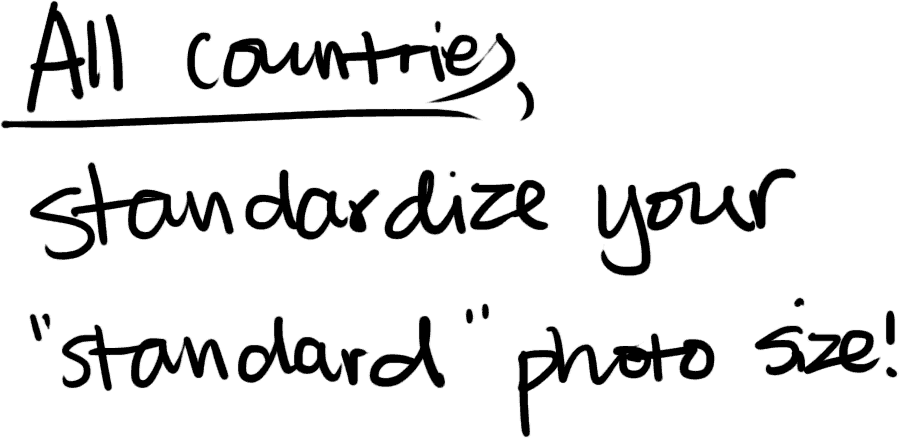 All countries,
standardize your
"standard" photo size!